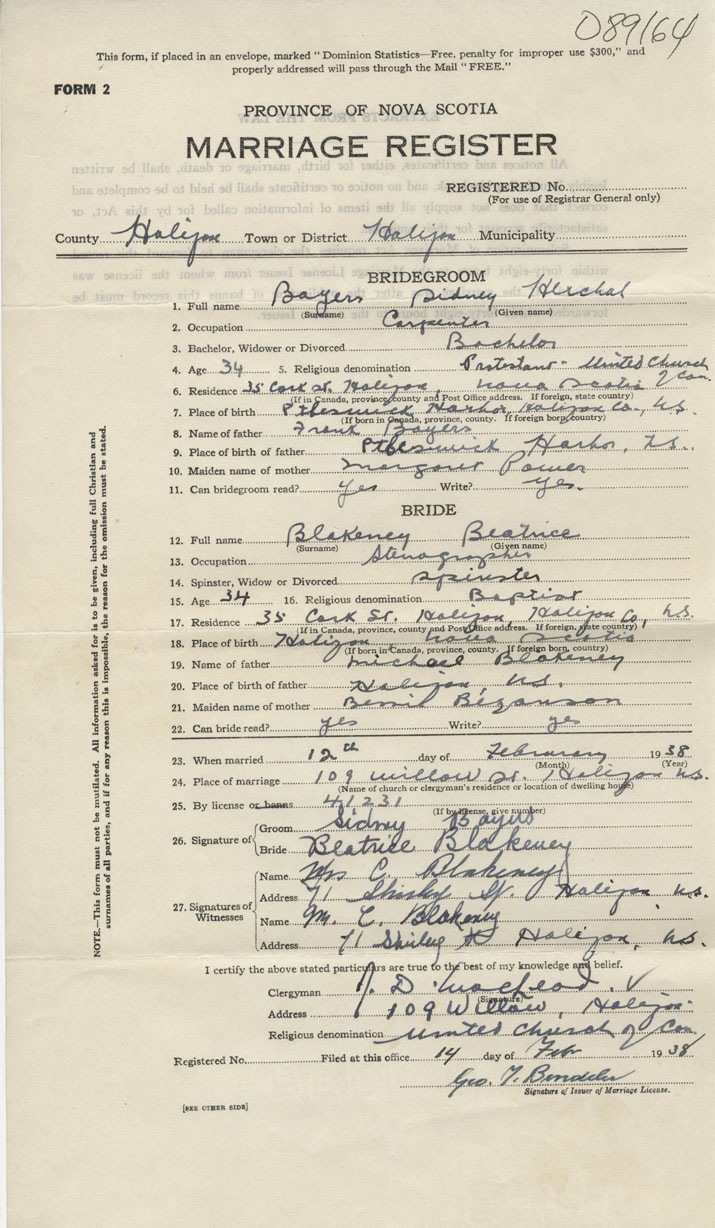 089164
This form, if placed in an envelope, marked "Dominion Statistics—Free, penalty for improper use $300," and
properly addressed will pass through the Mail "FREE."
FORM 2
PROVINCE OF NOVA SCOTIA
MARRIAGE REGISTER
REGISTERED No.
(For use of Registrar General only)
County Halifax Town or District Halifax Municipality
BRIDEGROOM
1. Full name Bayers Sidney Herchal
(Surname) (Given name)
2. Occupation Carpenter
3. Bachelor, Widower or Divorced Bachelor
4. Age 34 5. Religious denomination Protestant - United Church of Can.
6. Residence 35 Cork St. Halifax, Nova Scotia
(If in Canada, province, county and Post Office address. If foreign, state country)
7. Place of birth Harbor, Halifax Co., N.S.
(If born in Canada, province, county. If foreign born, country)
8. Name of father Frank Bayers
9. Place of birth of father Harbor, N.S.
10. Maiden name of mother Margaret Power
11. Can bridegroom read? Yes Write? Yes.
BRIDE
12. Full name Blakeney Beatrice
(Surname) (Given name)
13. Occupation Stenographer
14. Spinster, Widow or Divorced Spinster
15. Age 34 16. Religious denomination Baptist
17. Residence 35 Cork St. Halifax, Halifax Co, N.S.
(If in Canada, province, county and Post Office address. If foreign, state country)
18. Place of birth Halifax Nova Scotia
(If born in Canada, province, county. If foreign born, country)
19. Name of father Michael Blakeney
20. Place of birth of father Halifax, N.S.
21. Maiden name of mother Bezanson
22. Can bride read? yes Write? yes
23. When married 12th day of February 1938
(Month) (Year)
24. Place of marriage 109 Willow St. Halifax N.S.
(Name of church or clergyman's residence or location of dwelling house)
25. By license or banns 41231
(If by license, give number)
26. Signature of Groom Sidney Bayers
Bride Beatrice Blakeney
27. Signatures of Witnesses Name Mrs C. Blakeney
Address 71 Shirley St. Halifax N.S.
Name M. C. Blakeney
Address 71 Shirley St Halifax, N.S.
I certify the above stated particulars are true to the best of my knowledge and belief.
Clergyman J. D. MacLeod
(Signature)
Address 109 Willow, Halifax
Religious denomination United Church of Can.
Registered No. Filed at this office 14 day of Feb 1938
Geo. T.
Signature of Issuer of Marriage License.
[SEE OTHER SIDE]
NOTE.—This form must not be mutilated. All information asked for is to be given, including full Christian and
surnames of all parties, and if for any reason this is impossible, the reason for the omission must be stated.